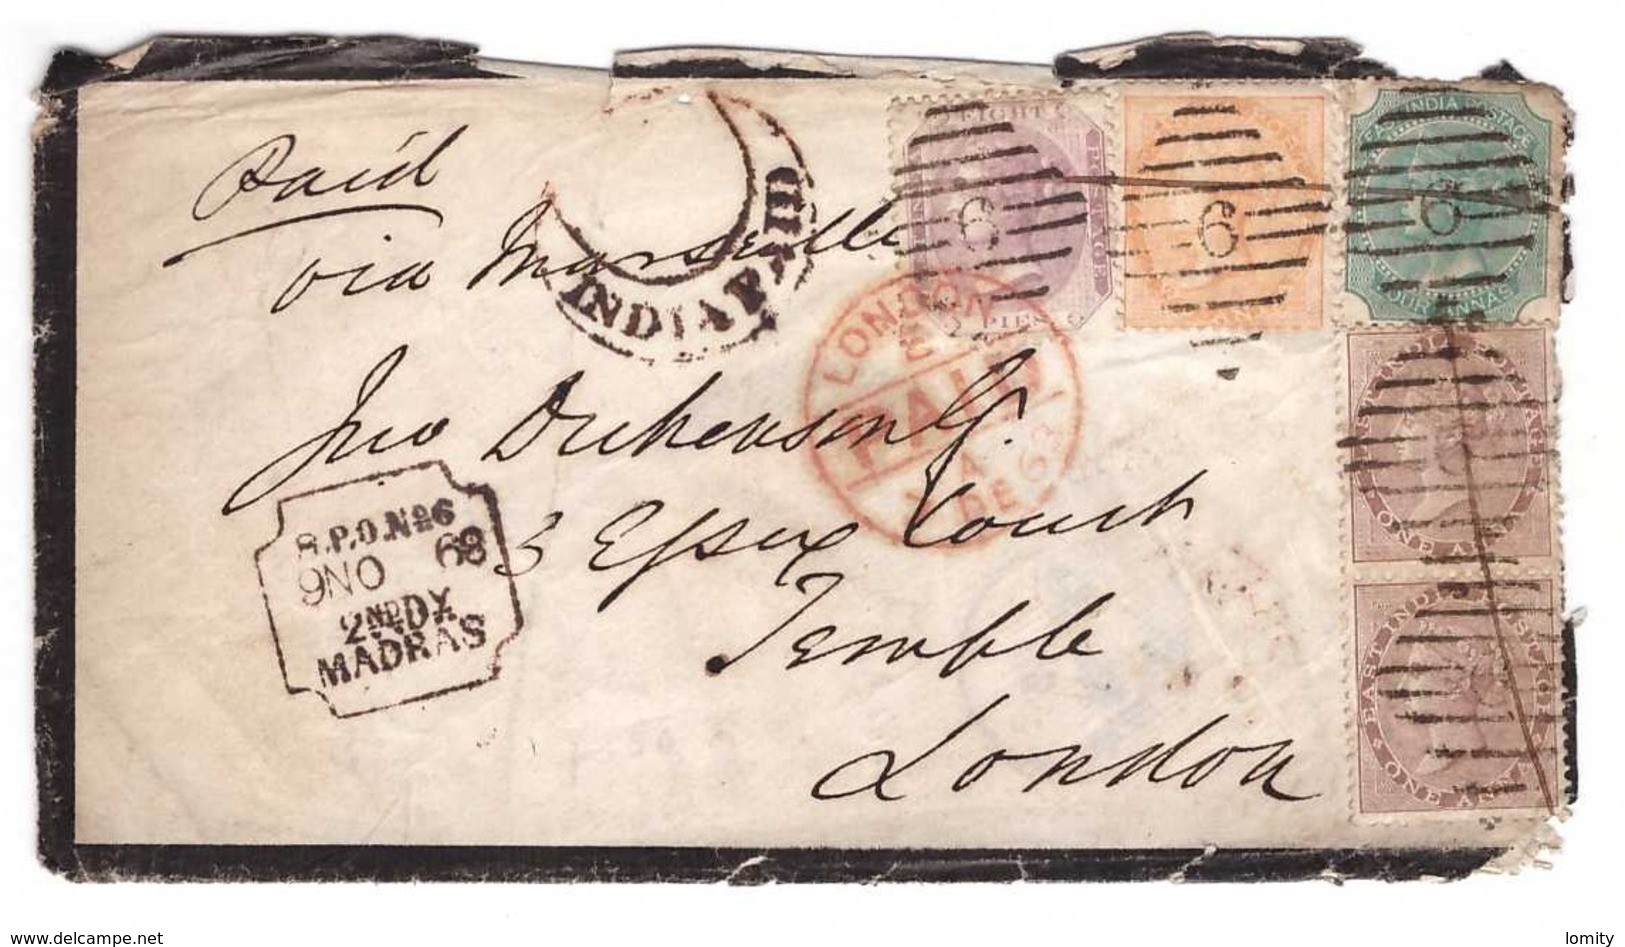 Paid
via Marseille
INDIA PAID
Jno Dickenson
3 Essex Court
Temple
London
R.P.O. No 6
9 NO 68
2ND DY
MADRAS
LONDON
PAID
DE 68
EIGHT
PIES
6
6
EAST INDIA POSTAGE
FOUR ANNAS
6
EAST INDIA POSTAGE
ONE ANNA
EAST INDIA POSTAGE
ONE ANNA
www.delcampe.net
lomity